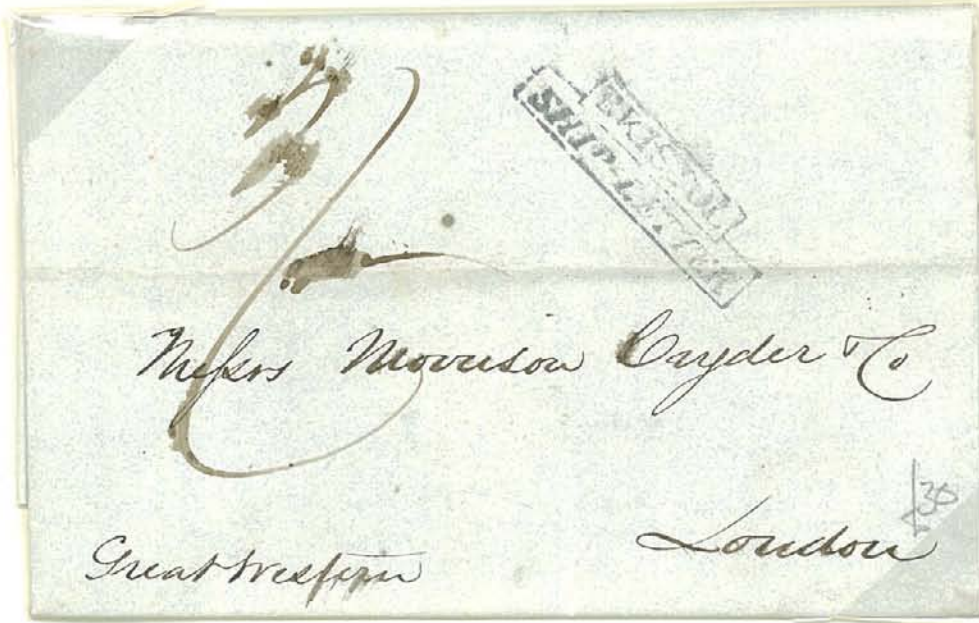 BRISTOL
SHIP-LETTER
Messrs Morrison Cryder & Co
London
Great Western